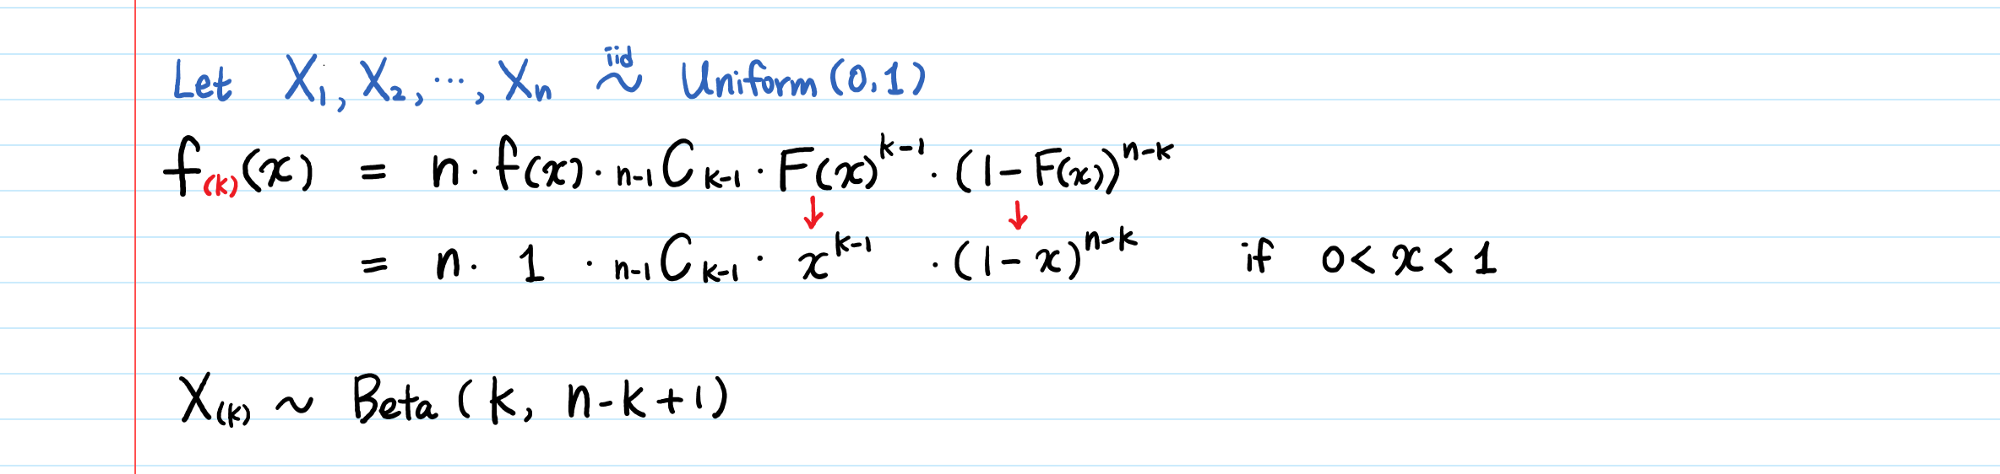 Let X₁, X₂, ⋯, Xₙ ~ⁱⁱᵈ Uniform (0,1)
f₍ₖ₎(x) = n · f(x) · ₙ₋₁Cₖ₋₁ · F(x)ᵏ⁻¹ · (1 − F(x))ⁿ⁻ᵏ
↓ ↓
= n · 1 · ₙ₋₁Cₖ₋₁ · xᵏ⁻¹ · (1 − x)ⁿ⁻ᵏ if 0 < x < 1
X₍ₖ₎ ~ Beta (k, n-k+1)